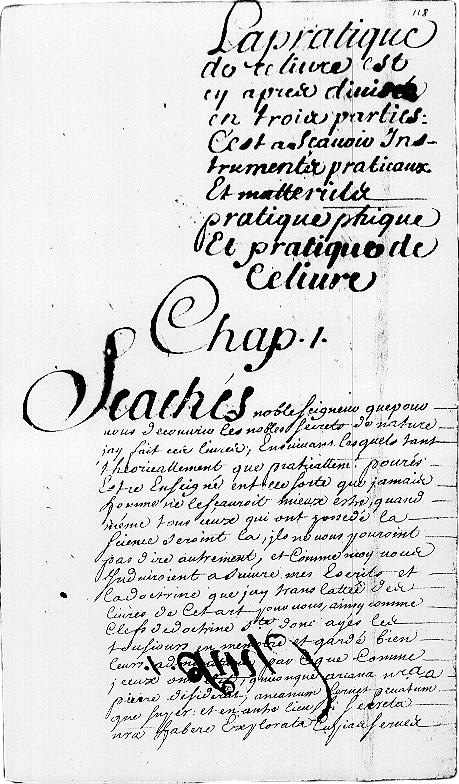 118
La pratique
de ce liure est
cy apres diuisée
en trois parties:
C'est a Scauoir Ins-
truments praticaux
Et matteriels
pratique phique
Et pratique de
Ce liure
Chap. 1.
Scachés noble Seigneur que pour
vous decouurir les nobles secrets de nature
jay fait ces liures, Ensuiuant lesquels tant
theoricallement que praticallem. pourés
Estre Enseigné en telle sorte que jamais
homme ne le scauroit mieux estre, quand
même tous ceux qui ont possedé la
science seroint la, jls ne vous pouroint
pas dire autrement, et Comme moy vous
Induiroient a suiure mes Escrits et
la doctrine que jay translattée des
liures de Cet art pour vous, ainsy comme
Clefs de doctrine donc ayés les
tousiours en memoire et gardé bien
leurs par Ce que Comme
jceux ont quiconque arcana nra
pierre desidera arcanum
que super. et en autre lieu secreta
nra habere Explorata